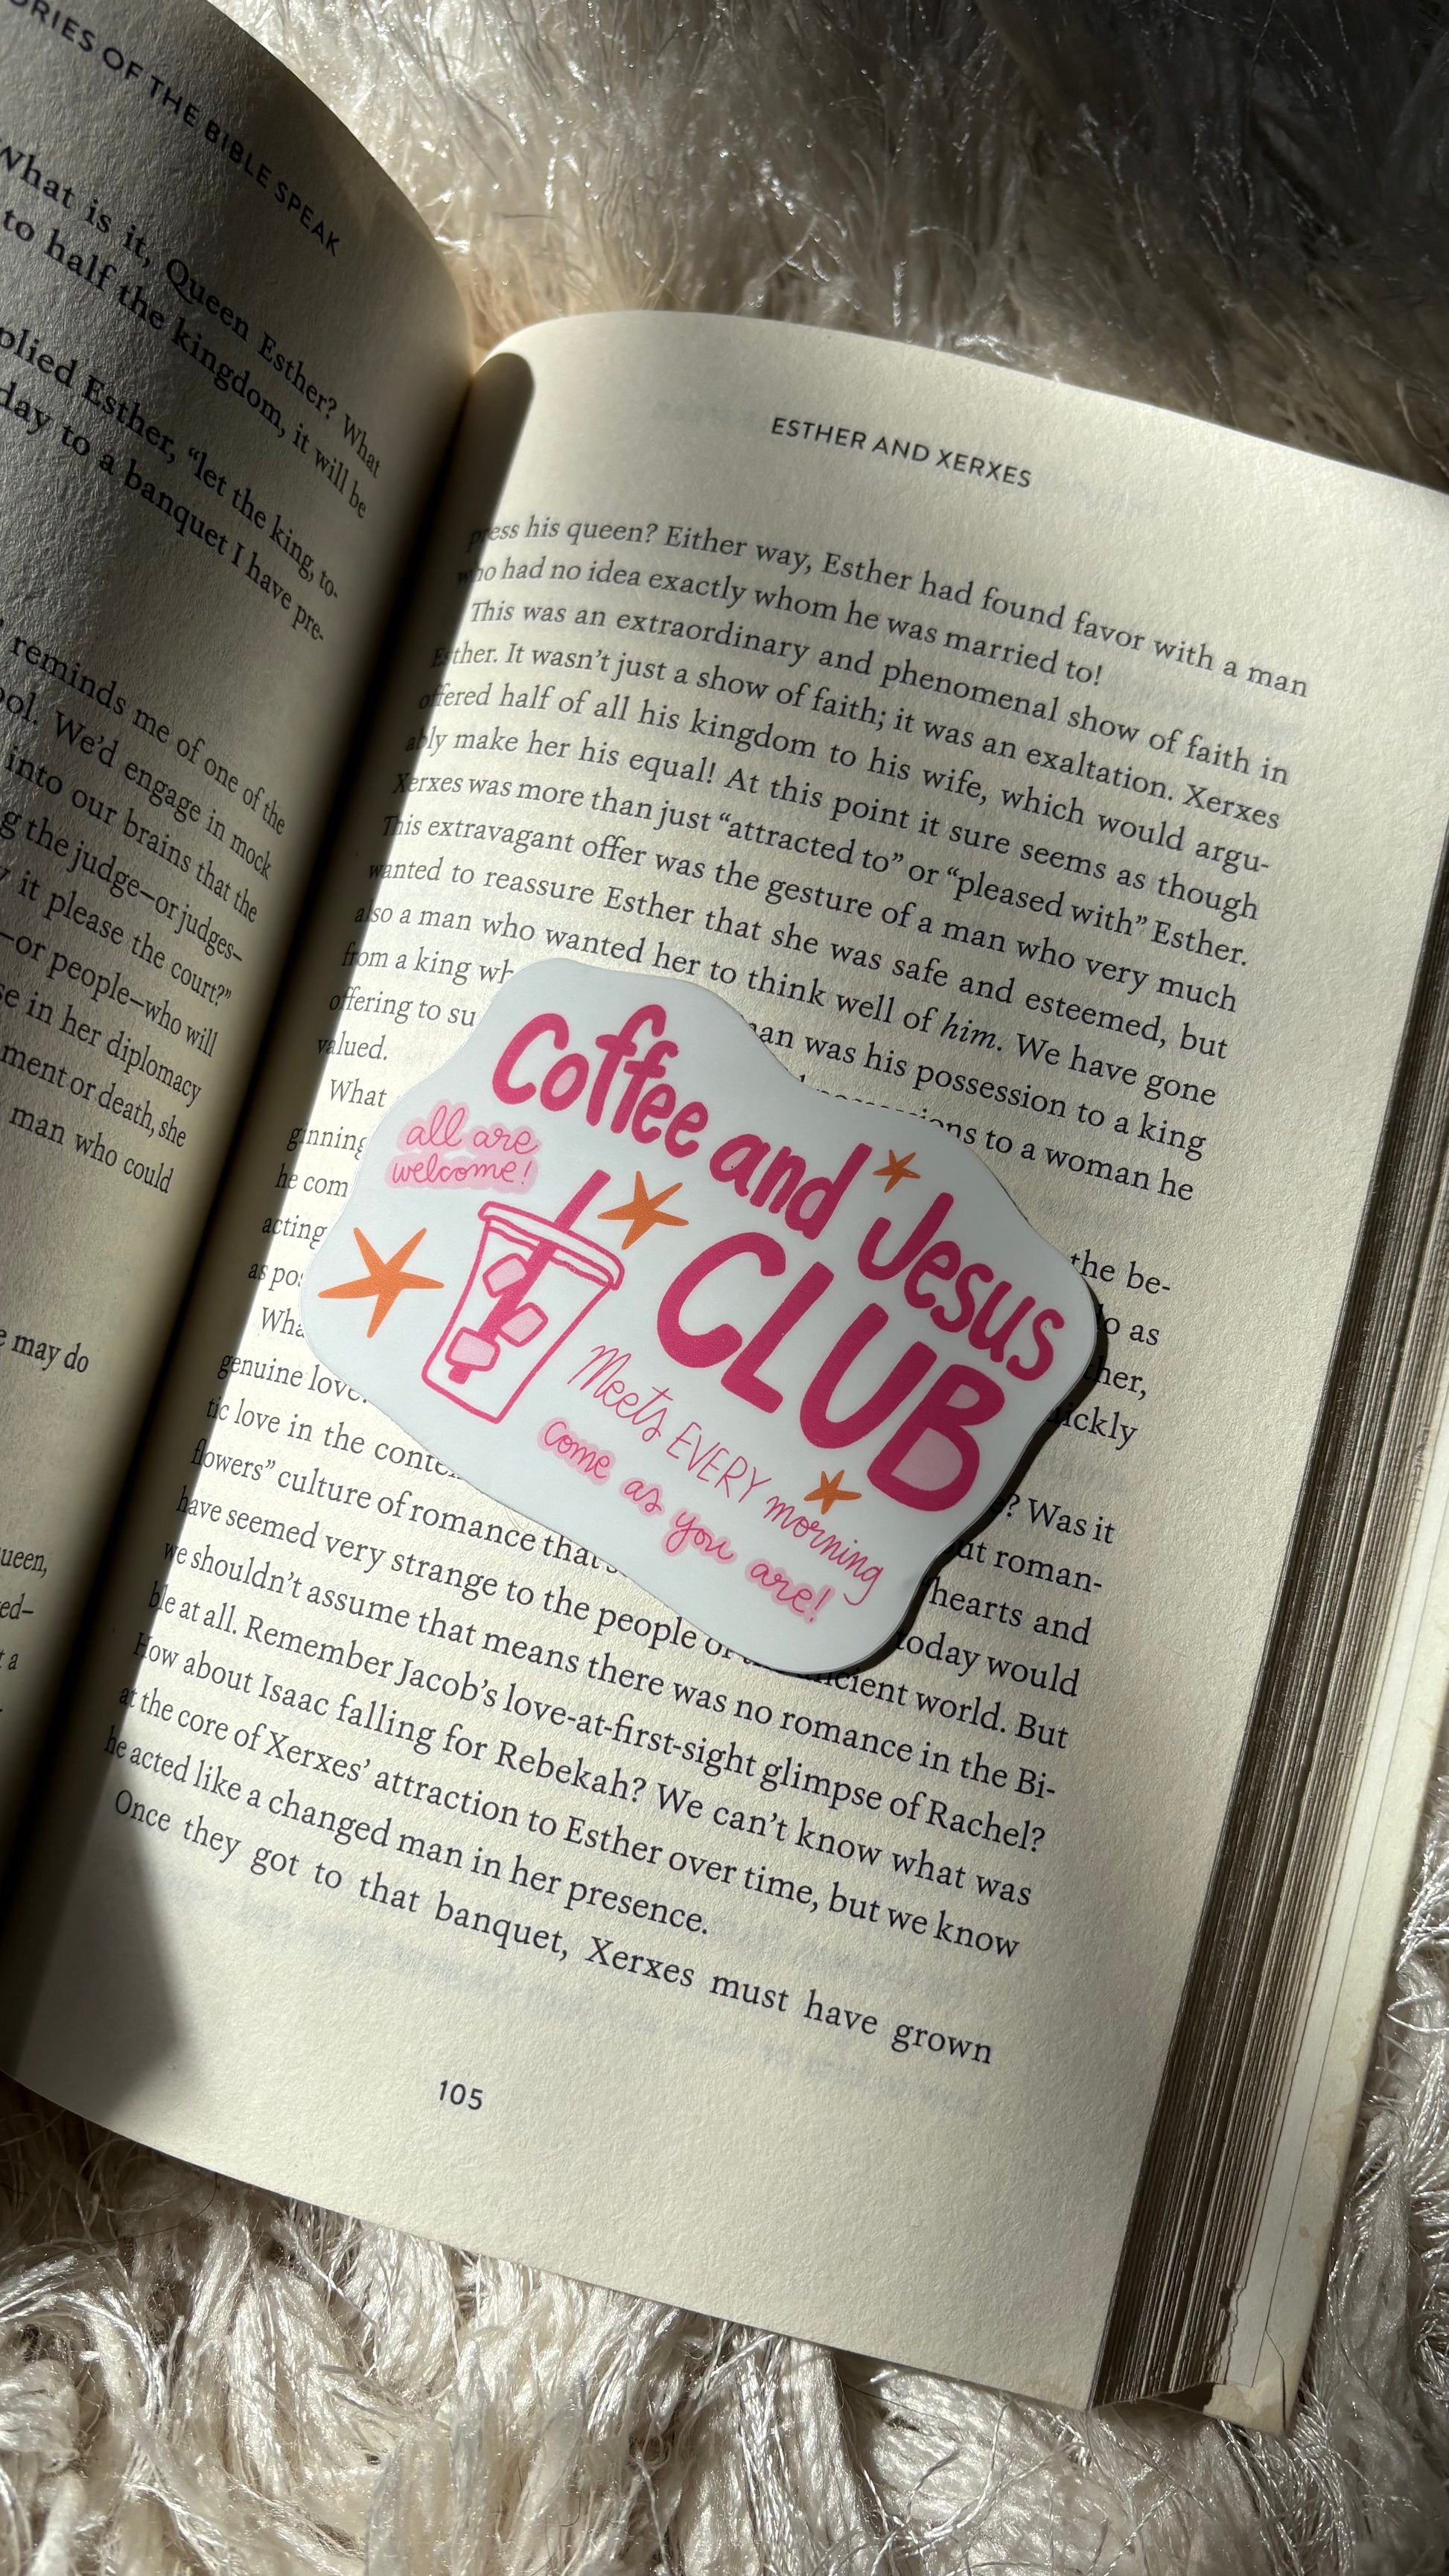 ORIES OF THE BIBLE SPEAK
What is it, Queen Esther? What
to half the kingdom, it will be
plied Esther, “let the king, to-
day to a banquet I have pre-
reminds me of one of the
ool. We’d engage in mock
into our brains that the
g the judge—or judges—
it please the court?”
—or people—who will
se in her diplomacy
ment or death, she
man who could
e may do
ueen,
ed—
t a
ESTHER AND XERXES
press his queen? Either way, Esther had found favor with a man
who had no idea exactly whom he was married to!
This was an extraordinary and phenomenal show of faith in
Esther. It wasn’t just a show of faith; it was an exaltation. Xerxes
offered half of all his kingdom to his wife, which would argu-
ably make her his equal! At this point it sure seems as though
Xerxes was more than just “attracted to” or “pleased with” Esther.
This extravagant offer was the gesture of a man who very much
wanted to reassure Esther that she was safe and esteemed, but
also a man who wanted her to think well of him. We have gone
from a king wh man was his possession to a king
offering to su possessions to a woman he
valued.
What the be-
ginning do as
he com her,
acting uickly
as pos
Wha e? Was it
genuine love. ut roman-
tic love in the conte hearts and
flowers” culture of romance that’s today would
have seemed very strange to the people of the ancient world. But
we shouldn’t assume that means there was no romance in the Bi-
ble at all. Remember Jacob’s love-at-first-sight glimpse of Rachel?
How about Isaac falling for Rebekah? We can’t know what was
at the core of Xerxes’ attraction to Esther over time, but we know
he acted like a changed man in her presence.
Once they got to that banquet, Xerxes must have grown
105
Coffee and Jesus
CLUB
all are
welcome!
Meets EVERY morning
come as you are!